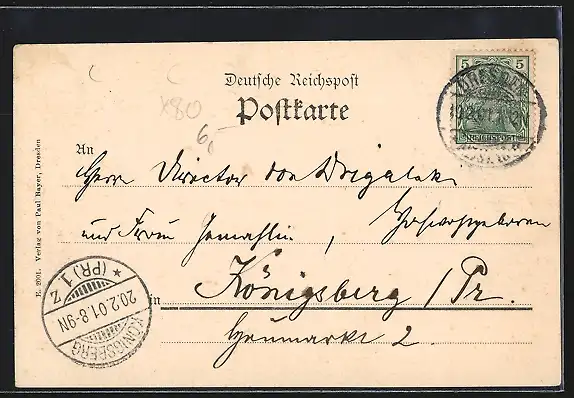 Deutsche Reichspost
Postkarte
x80
6,-
5 5
REICHSPOST
DRESDEN
19.2.01.
An
Herrn Director von Drigalski
und Frau Gemahlin, Hochwohlgeboren
in Königsberg / Pr.
Heumarkt 2.
KÖNIGSBERG
20.2.01.8-9N
* (PR.) 1 Z
E. 2001. Verlag von Paul Bayer, Dresden